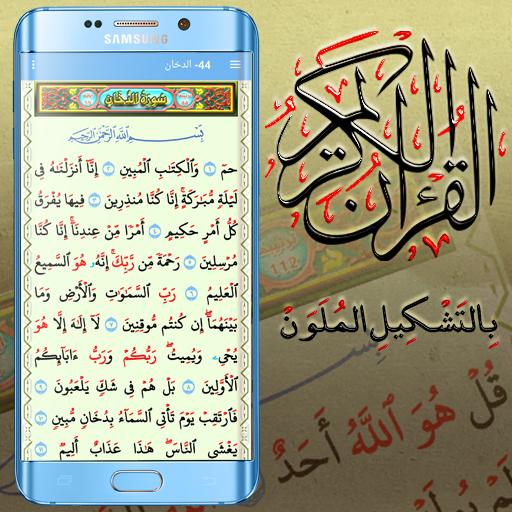 SAMSUNG
44- الدخان
سورة الدخان
بِسْمِ ٱللَّهِ ٱلرَّحْمَٰنِ ٱلرَّحِيمِ
حمٓ ١ وَٱلْكِتَٰبِ ٱلْمُبِينِ ٢ إِنَّآ أَنزَلْنَٰهُ فِى
لَيْلَةٍ مُّبَٰرَكَةٍ ۚ إِنَّا كُنَّا مُنذِرِينَ ٣ فِيهَا يُفْرَقُ
كُلُّ أَمْرٍ حَكِيمٍ ٤ أَمْرًا مِّنْ عِندِنَآ ۚ إِنَّا كُنَّا
مُرْسِلِينَ ٥ رَحْمَةً مِّن رَّبِّكَ ۚ إِنَّهُۥ هُوَ ٱلسَّمِيعُ
ٱلْعَلِيمُ ٦ رَبِّ ٱلسَّمَٰوَٰتِ وَٱلْأَرْضِ وَمَا
بَيْنَهُمَآ ۖ إِن كُنتُم مُّوقِنِينَ ٧ لَآ إِلَٰهَ إِلَّا هُوَ
يُحْىِۦ وَيُمِيتُ ۖ رَبُّكُمْ وَرَبُّ ءَابَآئِكُمُ
ٱلْأَوَّلِينَ ٨ بَلْ هُمْ فِى شَكٍّ يَلْعَبُونَ ٩
فَٱرْتَقِبْ يَوْمَ تَأْتِى ٱلسَّمَآءُ بِدُخَانٍ مُّبِينٍ ١٠
يَغْشَى ٱلنَّاسَ ۖ هَٰذَا عَذَابٌ أَلِيمٌ ١١
القرآن الكريم
بِالتَشْكِيلِ المُلَوَنْ
112
قُلْ هُوَ ٱللَّهُ أَحَدٌ